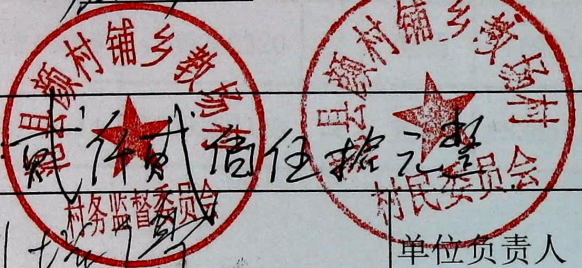 县颜村铺乡教场村
村务监督委员会
县颜村铺乡教场村
村民委员会
贰仟贰佰伍拾元整
单位负责人